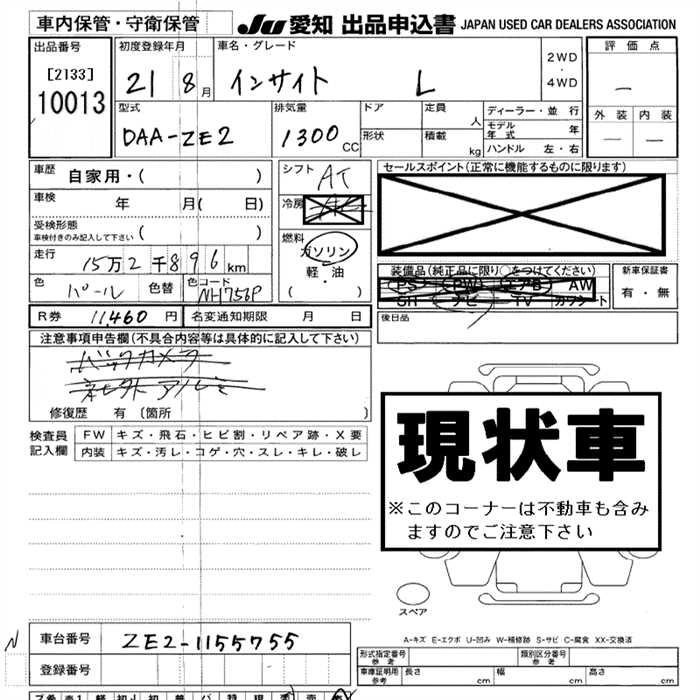 車内保管・守衛保管
JU 愛知 出品申込書 JAPAN USED CAR DEALERS ASSOCIATION
出品番号
[2133]
10013
初度登録年月
21 8月
車名・グレード
インサイト L
2WD
・
4WD
評価点
—
外装 内装
— —
型式
DAA-ZE2
排気量
1300cc
ドア
形状
定員
人
積載
kg
ディーラー・並行
モデル年式 年
ハンドル 左・右
車歴 自家用・( )
車検 年 月( 日)
受検形態
車検付きのみ記入して下さい ( )
走行 15万2千896km
色 パール 色替 色コード NH756P
シフト AT
冷房
燃料
ガソリン
・
軽・油
( )
セールスポイント(正常に機能するものに限ります)
装備品(純正品に限り○をつけてください)
PS PW エアB AW
SR ナビ TV カワシート
新車保証書
有・無
後日品
R券 11,460円 名変通知期限 月 日
注意事項申告欄(不具合内容等は具体的に記入して下さい)
バックカメラ
社外アルミ
修復歴 有〔箇所 〕
検査員記入欄
FW キズ・飛石・ヒビ割・リペア跡・X要
内装 キズ・汚レ・コゲ・穴・スレ・キレ・破レ
現状車
※このコーナーは不動車も含み
ますのでご注意下さい
スペア
A-キズ E-エクボ U-凹み W-補修跡 S-サビ C-腐食 XX-交換済
N
車台番号 ZE2-1155755
登録番号
形式指定番号 参考
類別区分番号 参考
車庫証明用 参考 長さ cm 幅 cm 高さ cm